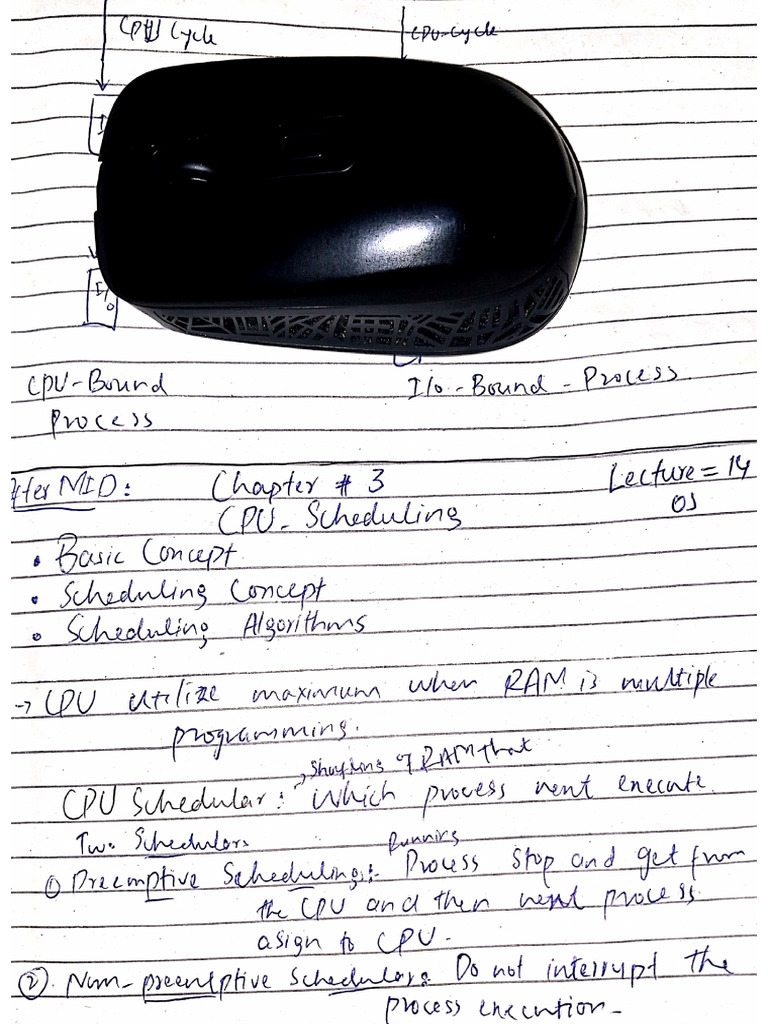 CPU Cycle
CPU-Cycle
I/o
CPU-Bound
Process
I/o-Bound-Process
After MID:
Chapter # 3
Lecture = 14
OS
CPU-Scheduling
• Basic Concept
• Scheduling Concept
• Scheduling Algorithms
→ CPU utilize maximum when RAM is multiple
programming.
of RAM that
CPU Schedular: Which process next execute.
Two Schedulars
Running
① Preemptive Scheduling: Process stop and get from
the CPU and then next process
asign to CPU.
②. Non-preemptive Schedulars: Do not interrupt the
process execution-